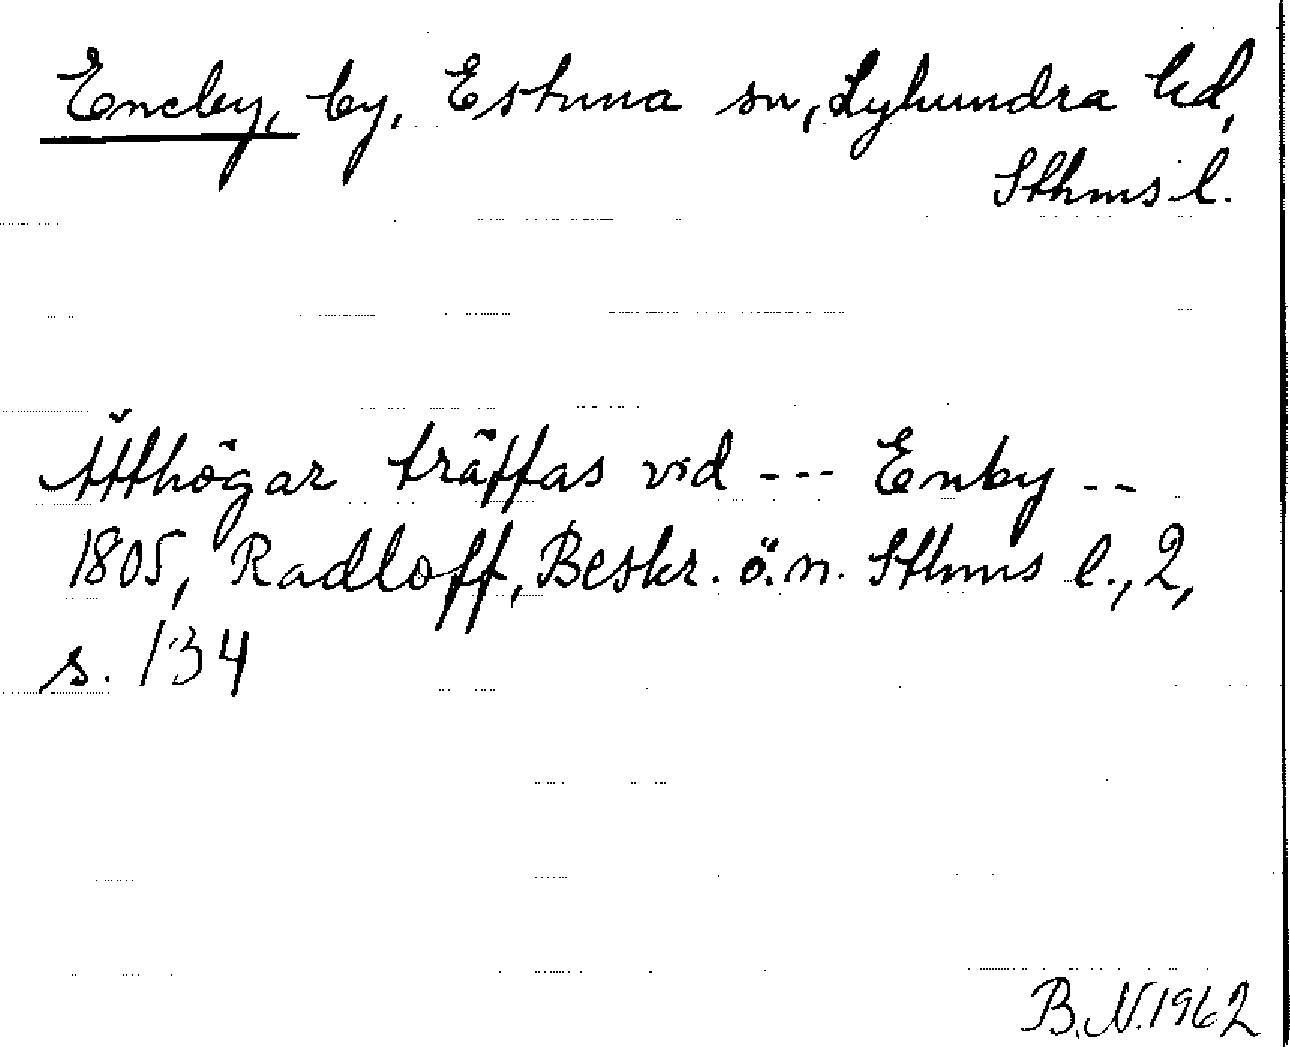 Eneby, by, Estuna sn, Lyhundra hd,
Sthms l.
Ätthögar träffas vid --- Enby --
1805, Radloff, Beskr. ö. n. Sthms l., 2,
s. 134
B.N. 1962